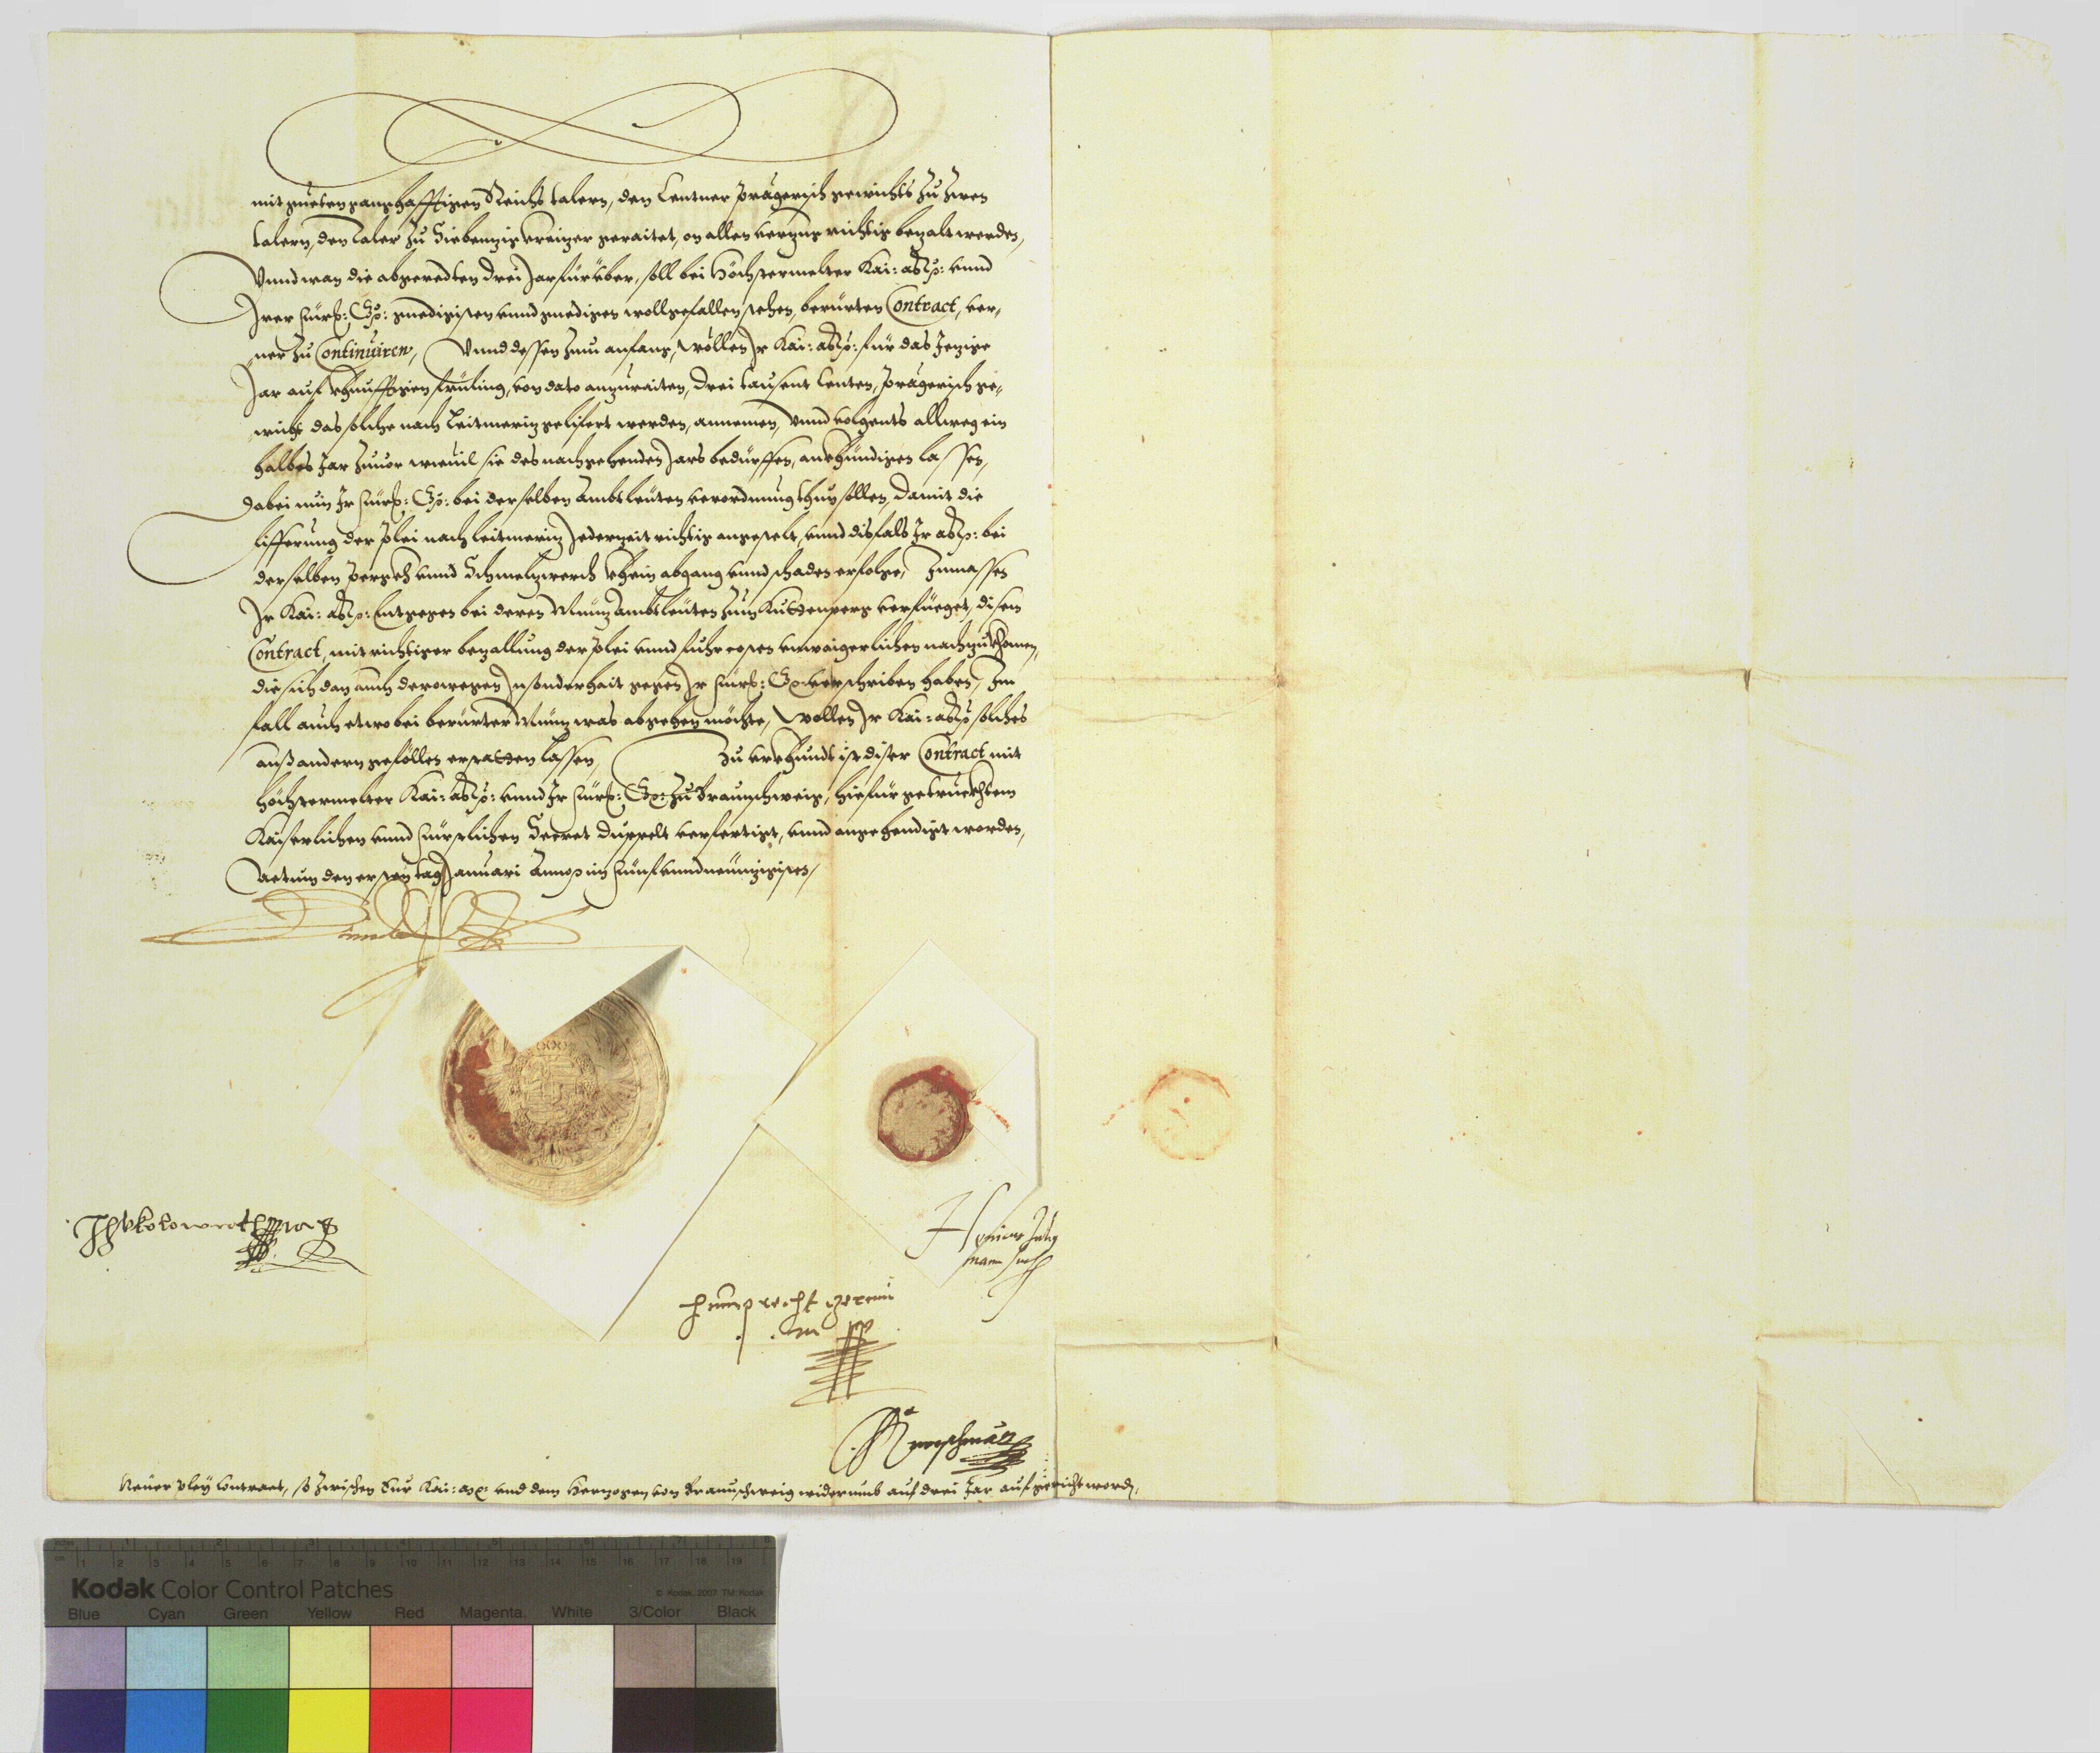 mit gueten ganghafftigen Reichs talern, den Centner Prägerisch gewichts zu zwen
talern, den taler zu Siebenzig kreizer geraitet, on allen verzug richtig bezalt werden,
Vnnd wan die abgeredten drei Jar fürüber, soll bei Höchstermelter Kai: Mt: vnnd
Irer Fürst: G: gnedigisten vnnd gnedigen wollgefallen stehen, berürten Contract, ver,
ner zu Continuiren, Vnnd dessen zum anfang, wöllen Ir Kai: Mt: für das Jezige
Jar auf khunfftigen früling, von dato anzuraiten, drei tausent Centen, Prägerisch ge,
wicht das solche nach Leitmeriz gelifert werden, annemen, Vnnd volgents allweg ein
halbes Jar zuuor wieuil sie des nachgehenden Jars bedürffen, ankhündigen lassen,
Dabei nun Ir Fürst: G: bei derselben Ambtleüten verordnung thun sollen, Damit die
lifferung der Plei nach Leitmeriz Jederzeit richtig angestelt, vnnd disfals Ir Mt: bei
derselben Pergkh vnnd Schmelzwerch khein abgang vnnd schaden erfolge, Inmassen
Ir Kai: Mt: entgegen bei deren Münz Ambtleüten zum Kuttenperg verfüeget, disem
Contract, mit richtiger bezallung der Plei vnnd fuhrcosten vnwaigerlichen nachzukhomen,
die sich dan auch derowegen Insonderhait gegen Ir Fürst: G: verschriben haben, Im
fall auch etwo bei berürter Münz was abgehen möchte, wollen Ir Kai: Mt: solches
auß andern gefölles erstatten lassen, Zu vrkhundt ist diser Contract mit
Höchstermelter Kai: Mt: vnnd Ir Fürst: G: zu Braunschweig, hiefür getruckhtem
Kaiserlichen vnnd Fürstlichen Secret duppelt verfertigt, vnnd angehendigt worden,
Actum den ersten tag Januari Anno im Fünfvnndneünzigisten,
Rudolf
Humprecht
Neuer Pley Contract, so zwischen Kai: Mt: vnd dem Herzogen von Braunschweig widerumb auf drei Jar aufgericht word,
Kodak Color Control Patches
© Kodak, 2007 TM: Kodak
Blue Cyan Green Yellow Red Magenta White 3/Color Black